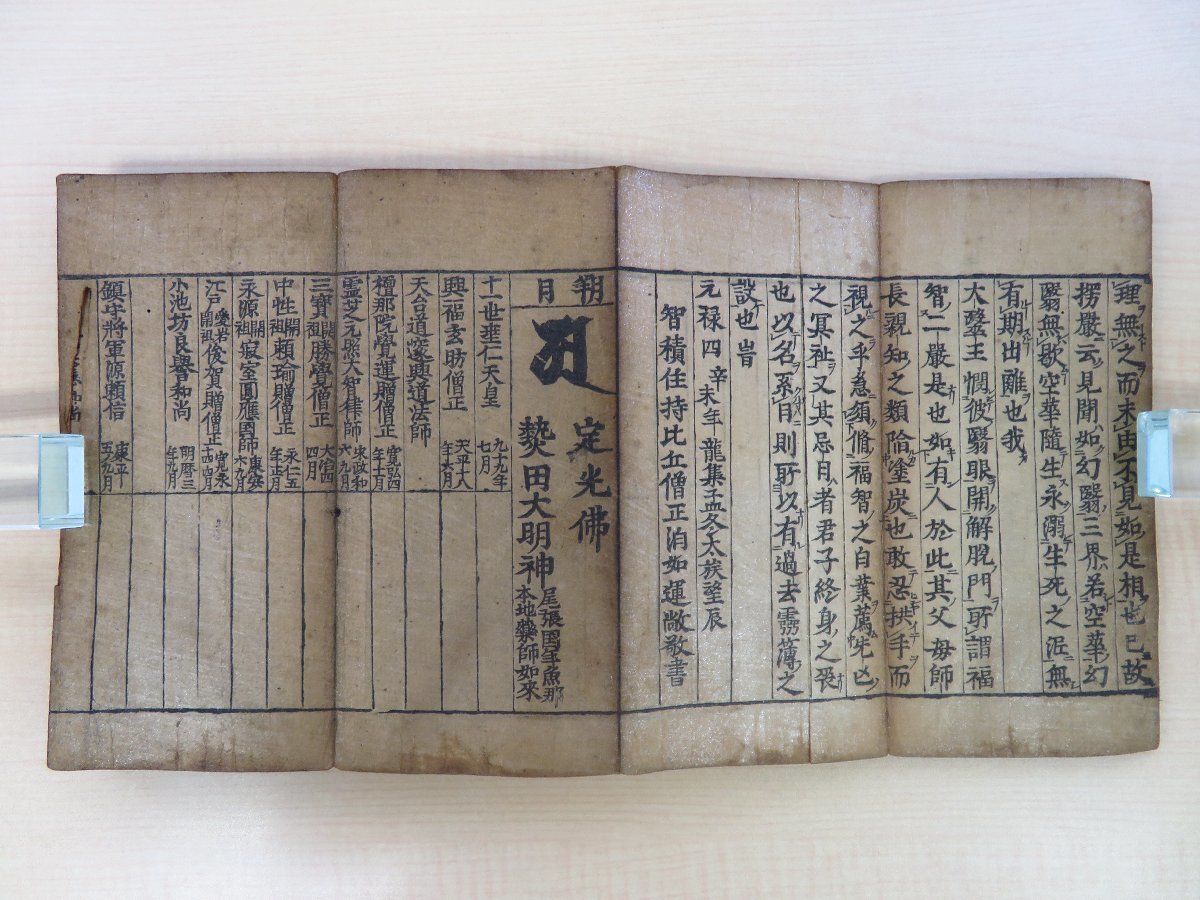 理無之而未由不見如是相也已故
楞嚴云見聞如幻翳三界若空華幻
翳無歇空華隨生永溺生死之泥無
有期出離也我
大醫王憫彼翳眼開解脫門所謂福
智二嚴是也如有人於此其父母師
長親知之類陥塗炭也敢忍拱手而
視之乎急須脩福智之白業薦先亡
之冥祉又其忌日者君子終身之喪
也以名系日則所以有過去霊簿之
設也旹
元禄四辛未年龍集孟冬太族望辰
智積住持比丘僧正泊如運敞敬書
朔日
定光佛
熱田大明神 尾張国年魚那 本地藥師如來
十一世垂仁天皇 九九年七月
興福玄昉僧正 天平十八年六月
天台道邃興道法師
檀那院覺運贈僧正 寛弘四年十月
霊芝元照大智律師 宋政和六九月
三寶開祖勝覺僧正 大治四四月
中性開祖頼瑜贈僧正 永仁五年正月
永源開祖寂室圓應國師 康安六九月
江戸愛宕開祖俊賀贈僧正 寛永十四四月
小池坊良譽和尚 明暦三年九月
鎮守将軍源頼信 康平五九月